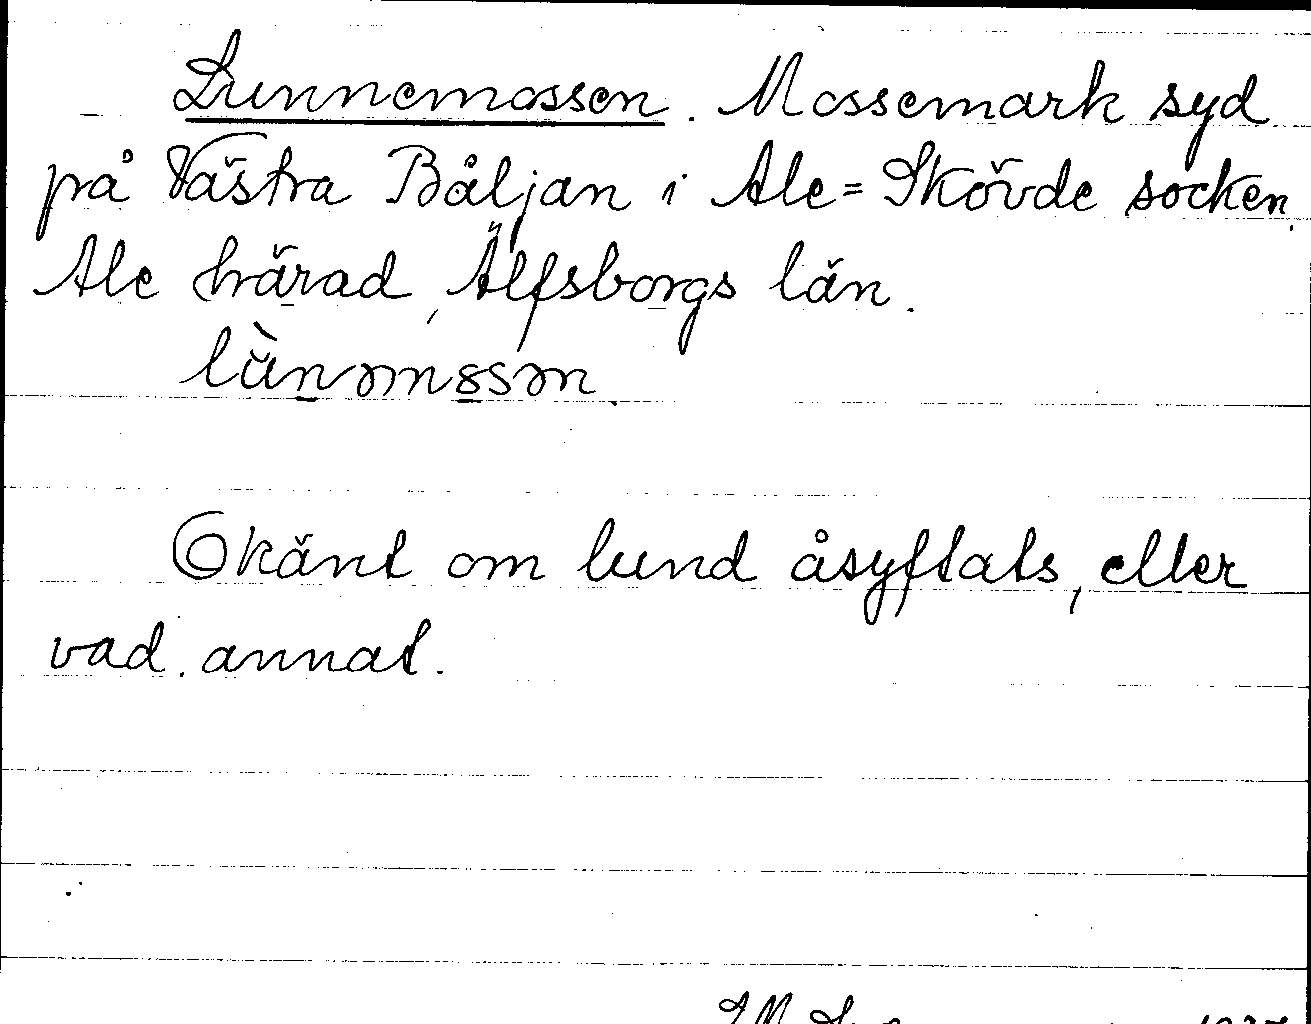 Lunnemossen. Mossemark syd
på Västra Båljan i Ale=Skövde socken,
Ale härad, Älfsborgs län.

Okänt om lund åsyftats, eller
vad annat.